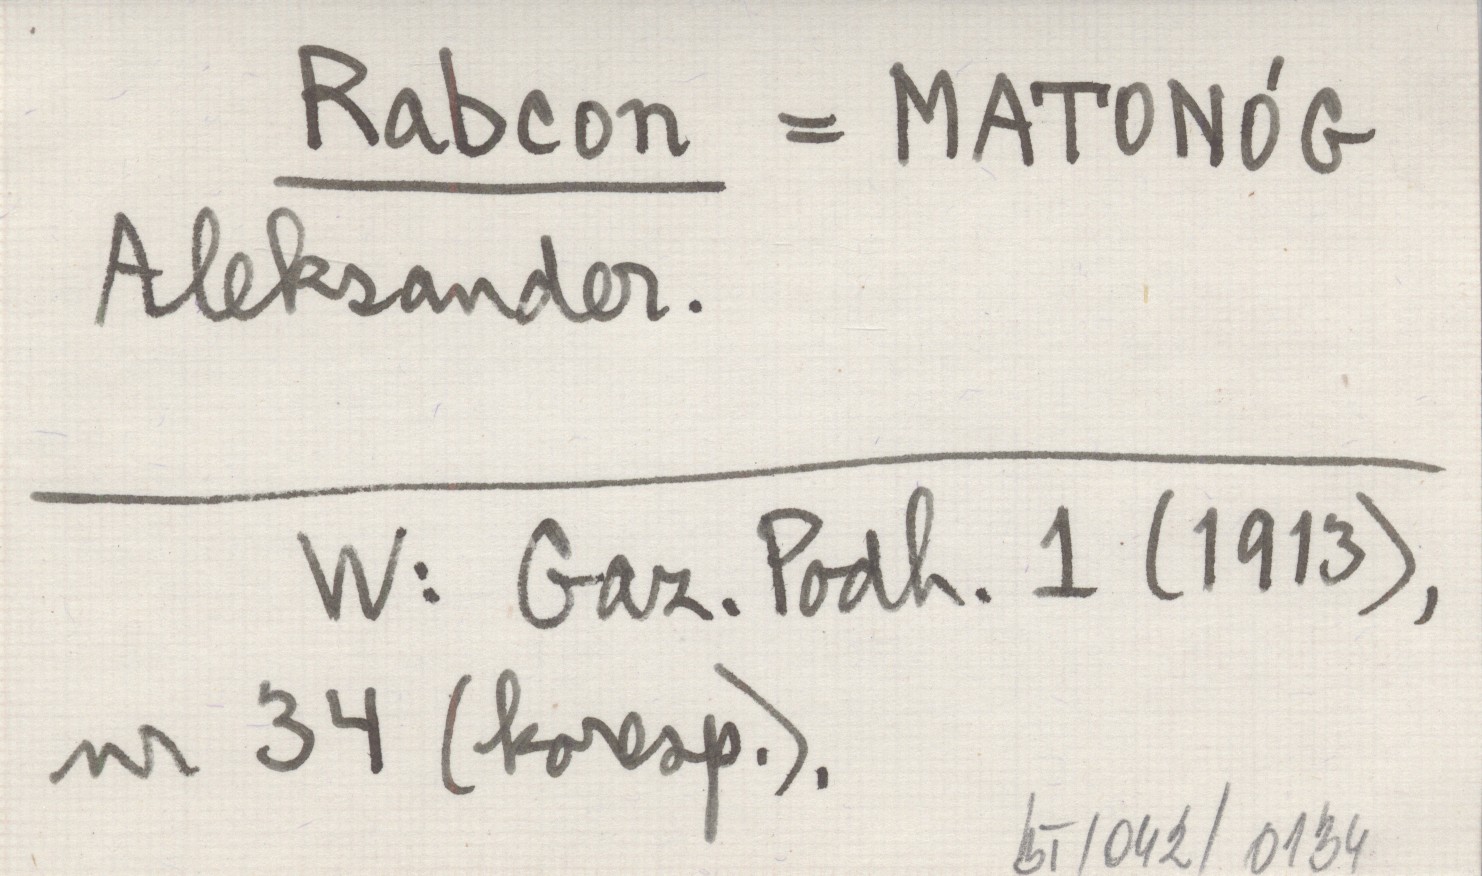 Rabcon = MATONÓG
Aleksander.
W: Gaz. Podh. 1 (1913),
nr 34 (koresp.).
/042/ 0134